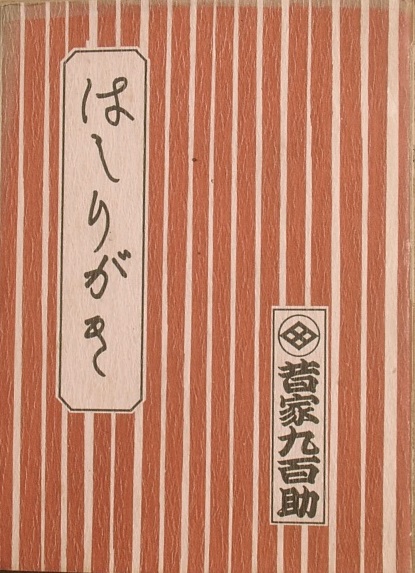 はしりがき
昔家九百助